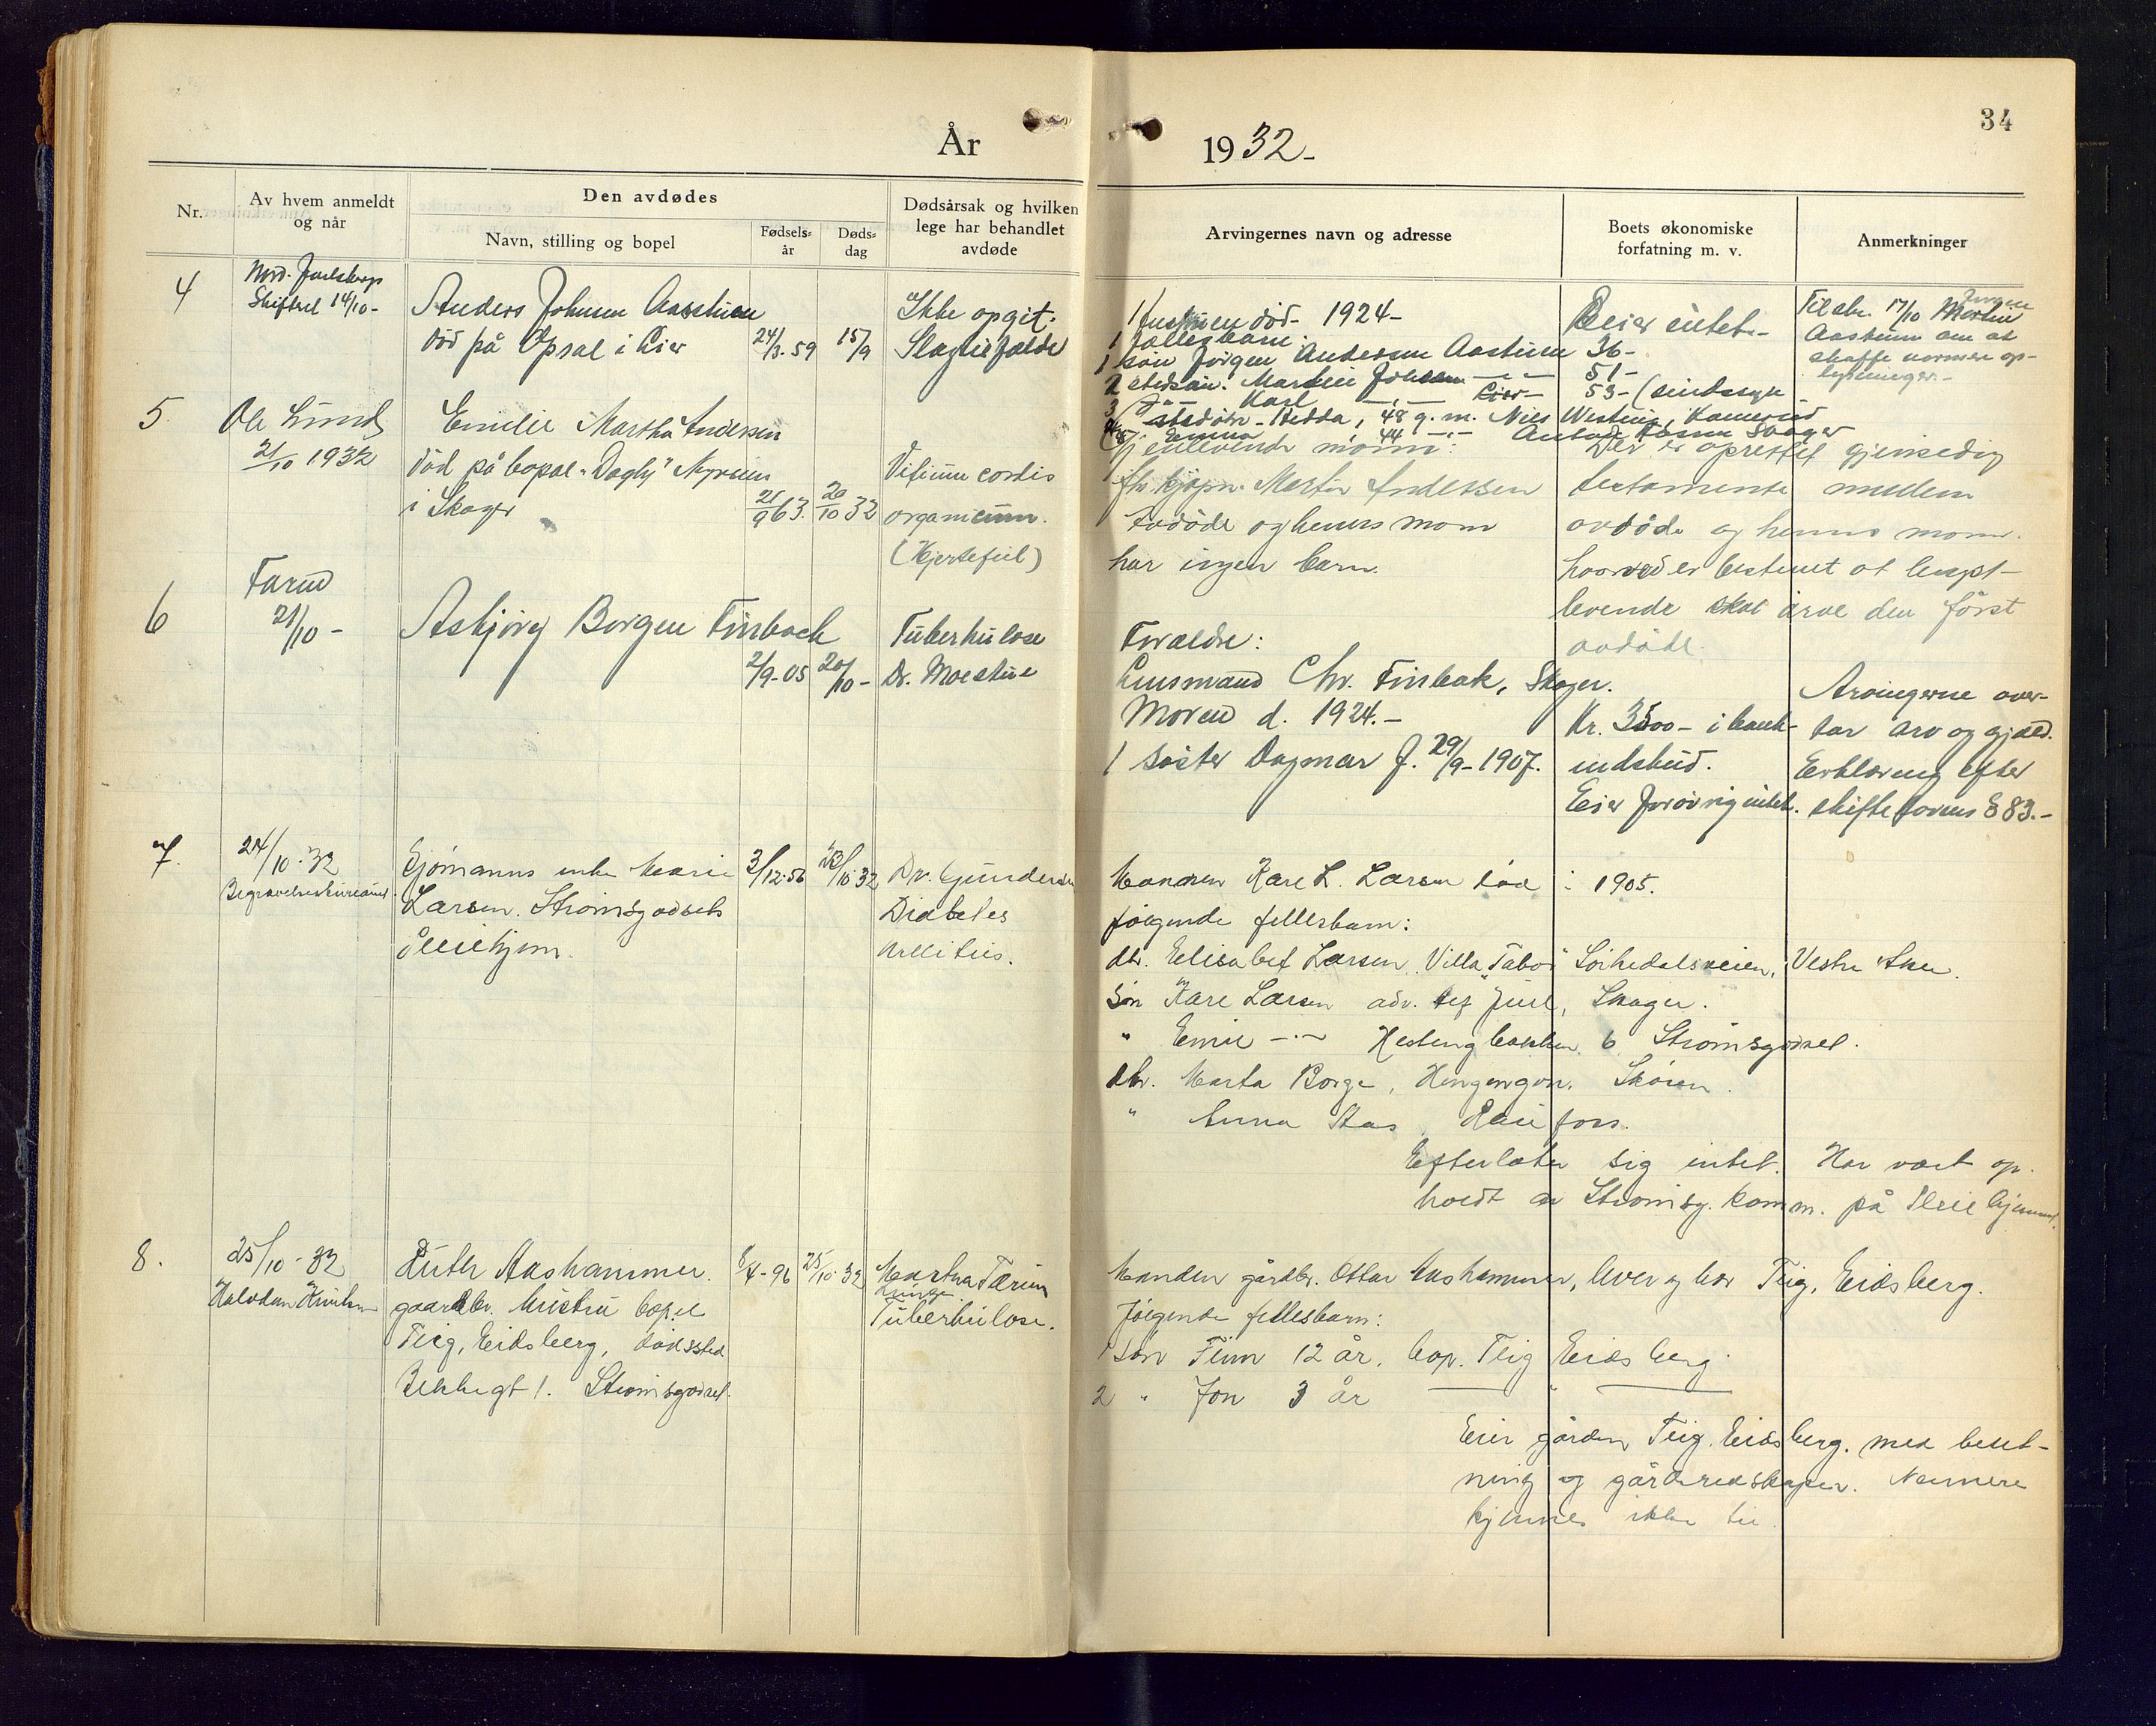 34
År 1932-
Nr.
Av hvem anmeldt
og når
Den avdødes
Navn, stilling og bopel
Fødsels-
år
Døds-
dag
Dødsårsak og hvilken
lege har behandlet
avdøde
Arvingernes navn og adresse
Boets økonomiske
forfatning m. v.
Anmerkninger
4
Nord. Jarlsberg
14/10-
Anders Johnsen Aasstuen
død på Opsal i Lier
24/3-59
15/9
Ikke opgit.
Slagtilfælde
1 død 1924-
1 fællesbarn:
1 søn Jörgen Andersen Aastuen 36-
2 stedsön: Martin Johnsen 51-
3 Karl Lier 53- (sindssyk
steddtr. Hedda, 48 g. m. Nils
Emma 44
Eier intet-
Tilskr. 17/10 Jörgen
Aastuen om at
skaffe nærmere op-
lysninger.-
5
Ole Lund
21/10 1932
Emilie Martha Andersen
död på bopæl "Dagly"
i Skoger
21/9 63
20/10 32
Vitium cordis
organicum.
(Hjertefeil)
Gjenlevende mann:
fh. kjöpm. Martin Andersen
Avdöde og hennes mann
har ingen barn.
Det er oprettet gjensidig
testamente mellem
avdöde og hennes mann.
hvorved er bestemt at lengst-
levende skal arve den först
avdöde.
6
Farud
21/10-
Asbjörg Borgen Finbak
2/9-05
20/10-
Tuberkulose
Dr. Moestue
Forældre:
Lensmand Chr. Finbak, Skoger.
Moren d. 1924.-
1 söster Dagmar f. 29/9-1907.
Kr. 3500- i bank-
indskud.
Eier forövrig intet.
Arvingerne over-
tar arv og gjæld.
Erklæring efter
skiftelovens § 83.-
7.
24/10-32
Begravelsesbureauet
Sjömanns enke Marie
Larsen. Strömsgodsets
Pleiehjem.
3/12-56
23/10-32
Dr. Gundersen
Diabetes
mellitus.
Mannen Kare L. Larsen död i 1905.
fölgende fellesbarn:
dtr. Elisabet Larsen. Villa "Tabor" Sörkedalsveien, Vestre Aker.
Sön Kare Larsen adr. Juel, Skoger.
" Emil -"- 6 Strömsgodset.
dtr. Marta Borge,
" Anna Aas, Raufoss.
Efterlater sig intet. Har vært op-
holdt av Strömsg. komm. på Pleiehjemmet.
8.
25/10-32
Halvdan
Ruth Aashammer.
gaardbr. hustru bopel
Teig, Eidsberg, dödssted
Bekkegt 1. Strömsgodset.
8/4-96
25/10-32
Lunge
Tuberkulose.
Manden gårdbr. Ottar Aashammer, lever og bor Teig, Eidsberg.
fölgende fellesbarn:
1 Sön Finn 12 år, bop. Teig Eidsberg.
2 " Jon 3 år —— " ——
Eier gården Teig, Eidsberg. med beset-
ning og gårdsredskaper. Nærmere
kjennes ikke til.